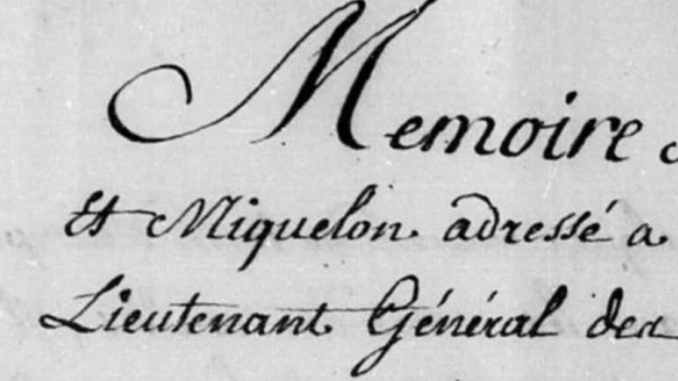 Memoire
et Miquelon. adressé a
Lieutenant Général des